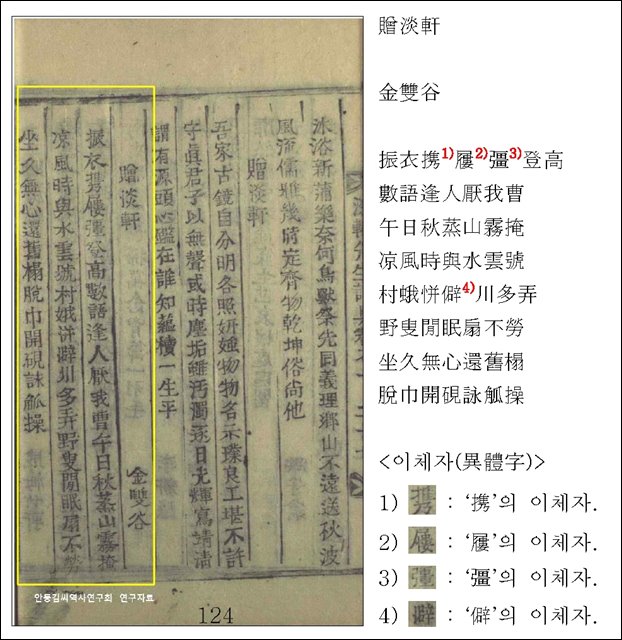 沐浴新蒲藥奈何鳥獸祭先同義理鄉山不遠送秋波
風流儒雅幾時定齊物乾坤俗尙他
贈淡軒
吾家古鏡自分明各照妍媸物物名示璞良工堪不許
字眞君子以無聲或時塵垢離汚濁逐日光輝寫靖淸
謂有源頭心鑑在誰知蘊櫝一生平
贈淡軒 金雙谷
振衣携屨彊登高數語逢人厭我曹午日秋蒸山霧掩
凉風時與水雲號村娥恲僻川多弄野叟閒眠扇不勞
坐久無心還舊榻脫巾開硯詠觚操
안동김씨역사연구회 연구자료
124
贈淡軒
金雙谷
振衣携1)屨2)彊3)登高
數語逢人厭我曹
午日秋蒸山霧掩
凉風時與水雲號
村蛾恲僻4)川多弄
野叟閒眠扇不勞
坐久無心還舊榻
脫巾開硯詠觚操
<이체자(異體字)>
1) 携 : ‘携’의 이체자.
2) 屨 : ‘屨’의 이체자.
3) 彊 : ‘彊’의 이체자.
4) 僻 : ‘僻’의 이체자.